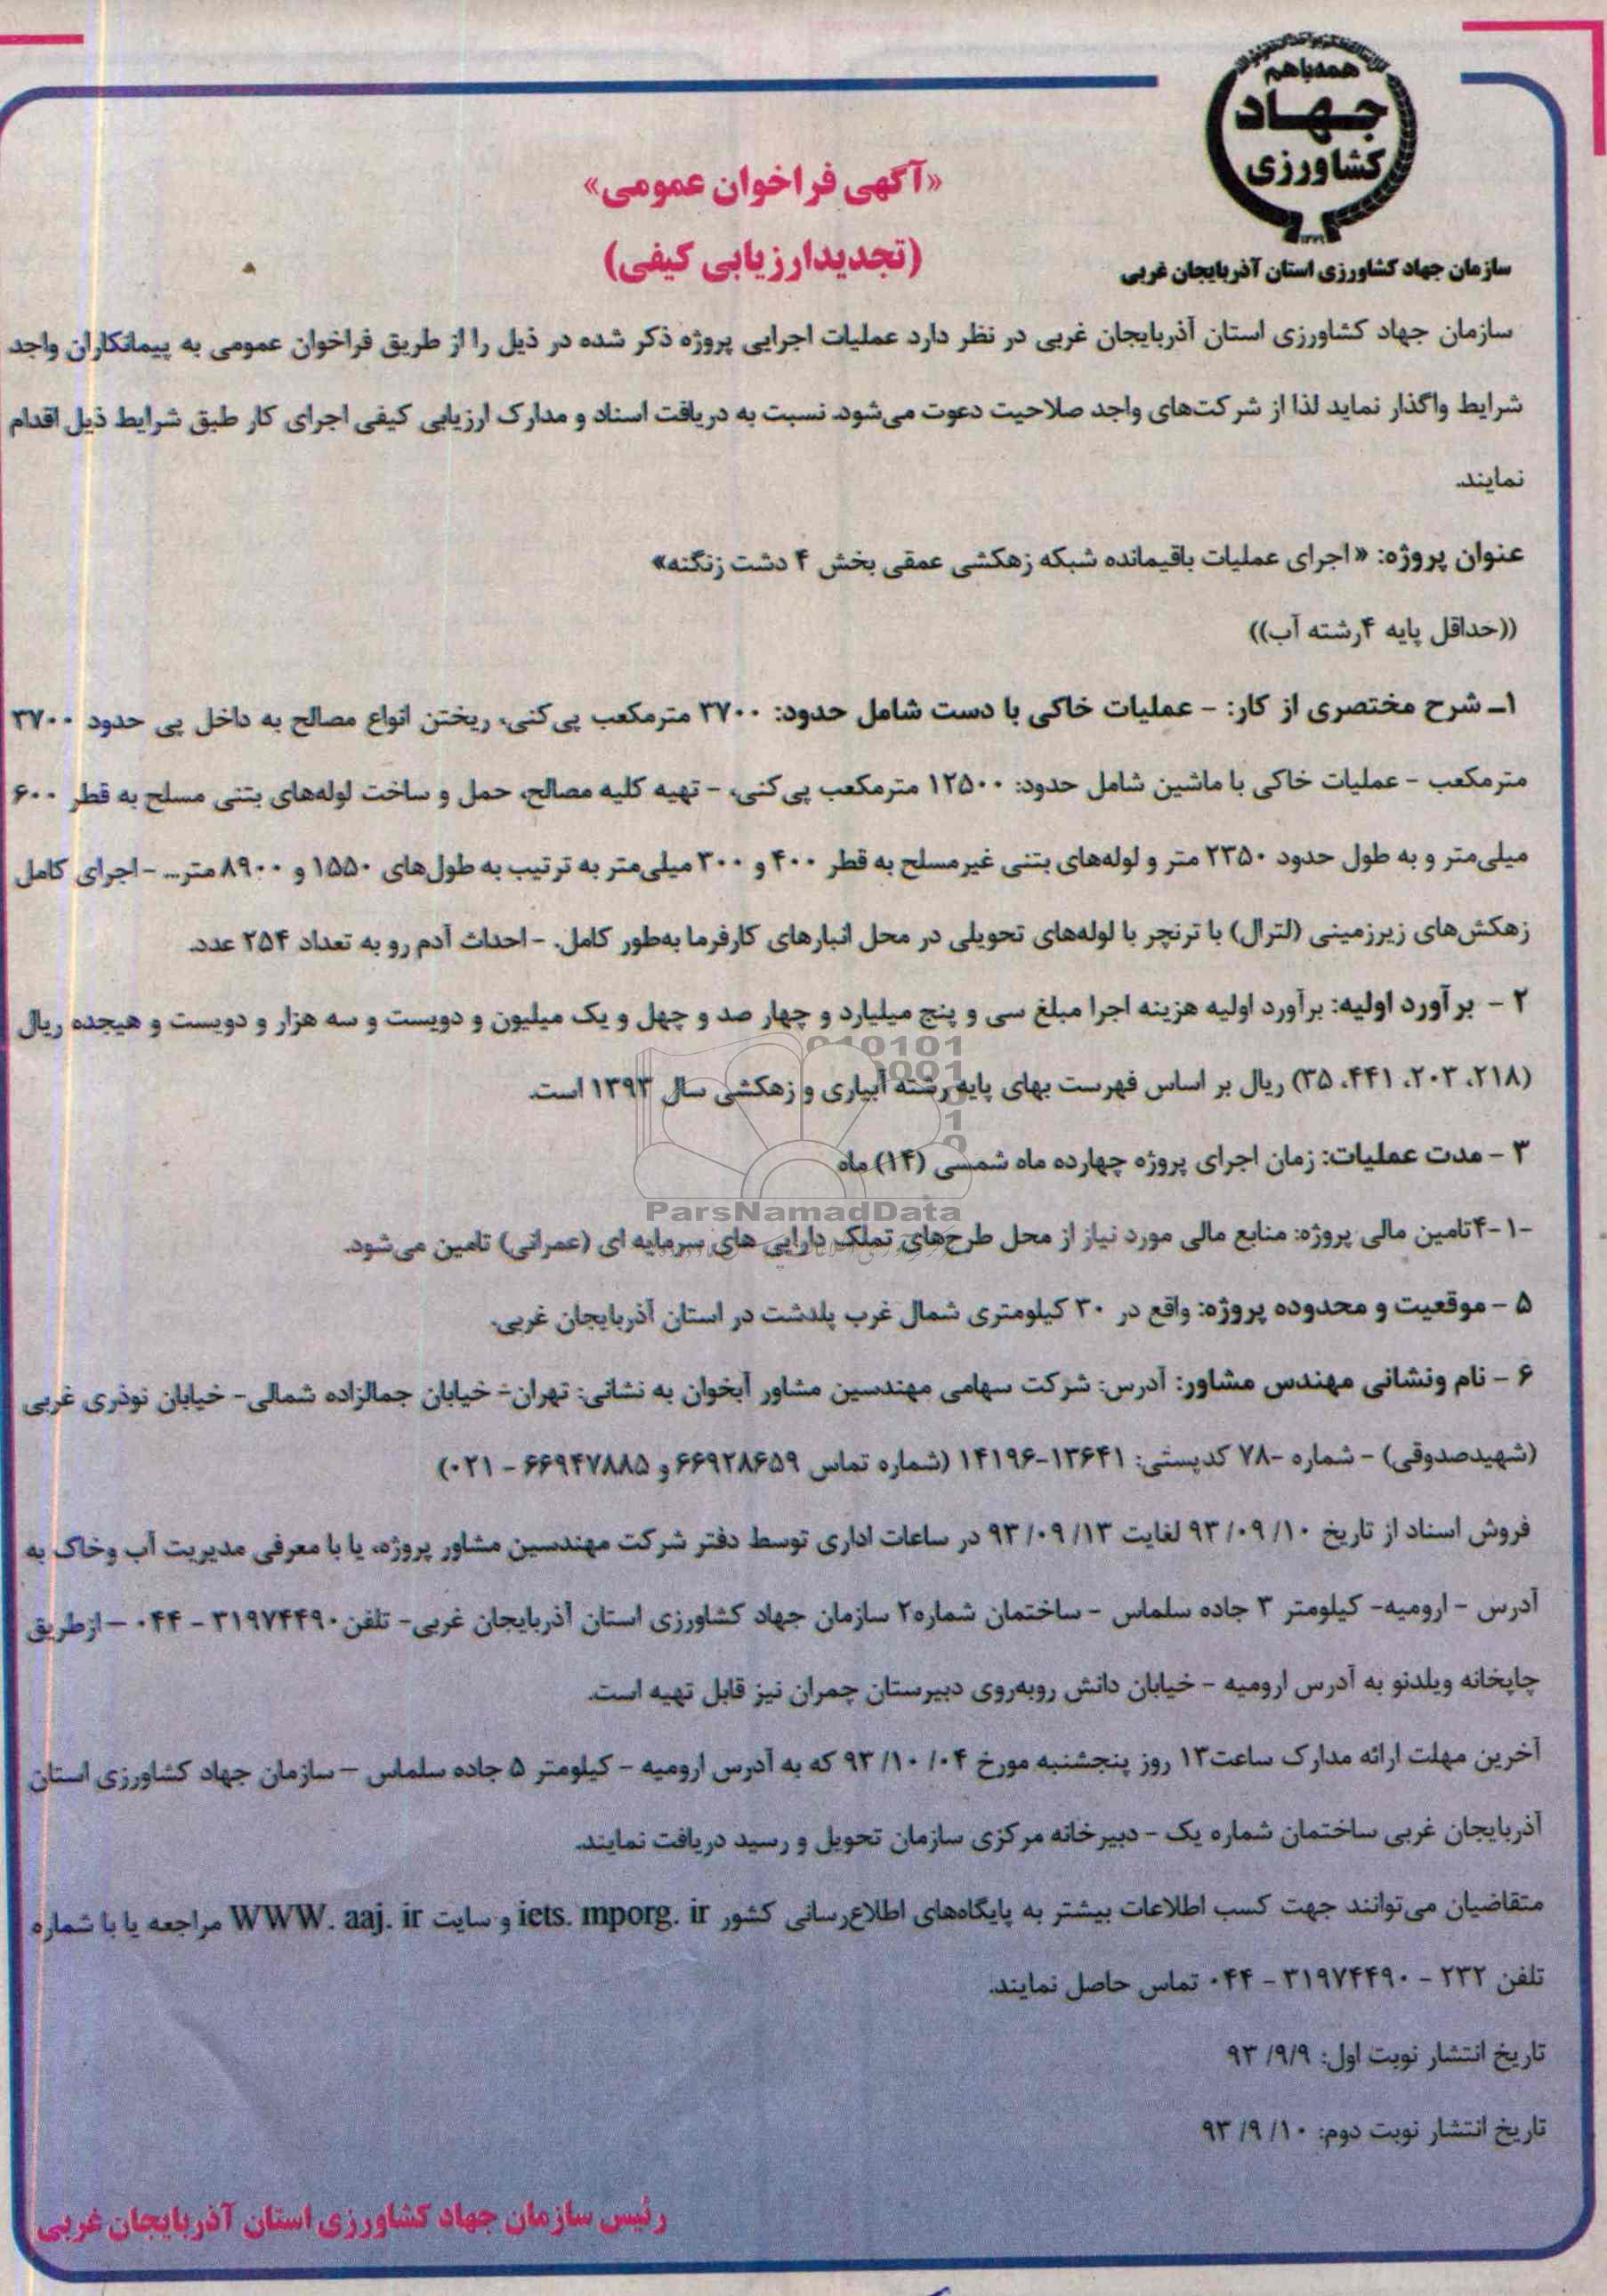 همه با هم
جهاد
کشاورزی
سازمان جهاد کشاورزی استان آذربایجان غربی
«آگهی فراخوان عمومی»
(تجدیدارزیابی کیفی)
سازمان جهاد کشاورزی استان آذربایجان غربی در نظر دارد عملیات اجرایی پروژه ذکر شده در ذیل را از طریق فراخوان عمومی به پیمانکاران واجد
شرایط واگذار نماید لذا از شرکت‌های واجد صلاحیت دعوت می‌شود. نسبت به دریافت اسناد و مدارک ارزیابی کیفی اجرای کار طبق شرایط ذیل اقدام
نمایند.
عنوان پروژه: «اجرای عملیات باقیمانده شبکه زهکشی عمقی بخش ۴ دشت زنگنه»
((حداقل پایه ۴رشته آب))
۱ـ شرح مختصری از کار: - عملیات خاکی با دست شامل حدود: ۳۷۰۰ مترمکعب پی‌کنی، ریختن انواع مصالح به داخل پی حدود ۳۷۰۰
مترمکعب - عملیات خاکی با ماشین شامل حدود: ۱۲۵۰۰ مترمکعب پی‌کنی، - تهیه کلیه مصالح، حمل و ساخت لوله‌های بتنی مسلح به قطر ۶۰۰
میلی‌متر و به طول حدود ۲۳۵۰ متر و لوله‌های بتنی غیرمسلح به قطر ۴۰۰ و ۳۰۰ میلی‌متر به ترتیب به طول‌های ۱۵۵۰ و ۸۹۰۰ متر... - اجرای کامل
زهکش‌های زیرزمینی (لترال) با ترنچر با لوله‌های تحویلی در محل انبارهای کارفرما به‌طور کامل. - احداث آدم رو به تعداد ۲۵۴ عدد.
۲ - برآورد اولیه: برآورد اولیه هزینه اجرا مبلغ سی و پنج میلیارد و چهار صد و چهل و یک میلیون و دویست و سه هزار و دویست و هیجده ریال
(۲۱۸، ۲۰۳، ۴۴۱، ۳۵) ریال بر اساس فهرست بهای پایه رشته آبیاری و زهکشی سال ۱۳۹۳ است.
۳ - مدت عملیات: زمان اجرای پروژه چهارده ماه شمسی (۱۴) ماه
ParsNamadData
-۱-۴تامین مالی پروژه: منابع مالی مورد نیاز از محل طرح‌های تملک دارایی های سرمایه ای (عمرانی) تامین می‌شود.
۵ - موقعیت و محدوده پروژه: واقع در ۳۰ کیلومتری شمال غرب پلدشت در استان آذربایجان غربی.
۶ - نام ونشانی مهندس مشاور: آدرس: شرکت سهامی مهندسین مشاور آبخوان به نشانی: تهران- خیابان جمالزاده شمالی- خیابان نوذری غربی
(شهیدصدوقی) - شماره -۷۸ کدپستی: ۱۳۶۴۱-۱۴۱۹۶ (شماره تماس ۶۶۹۲۸۶۵۹ و ۶۶۹۴۷۸۸۵ - ۰۲۱)
فروش اسناد از تاریخ ۱۰/ ۰۹/ ۹۳ لغایت ۱۳/ ۰۹/ ۹۳ در ساعات اداری توسط دفتر شرکت مهندسین مشاور پروژه، یا با معرفی مدیریت آب وخاک به
آدرس - ارومیه- کیلومتر ۳ جاده سلماس - ساختمان شماره۲ سازمان جهاد کشاورزی استان آذربایجان غربی- تلفن۳۱۹۷۴۴۹۰ - ۰۴۴ – ازطریق
چاپخانه ویلدنو به آدرس ارومیه - خیابان دانش روبه‌روی دبیرستان چمران نیز قابل تهیه است.
آخرین مهلت ارائه مدارک ساعت۱۳ روز پنجشنبه مورخ ۰۴/ ۱۰/ ۹۳ که به آدرس ارومیه - کیلومتر ۵ جاده سلماس – سازمان جهاد کشاورزی استان
آذربایجان غربی ساختمان شماره یک - دبیرخانه مرکزی سازمان تحویل و رسید دریافت نمایند.
متقاضیان می‌توانند جهت کسب اطلاعات بیشتر به پایگاه‌های اطلاع‌رسانی کشور iets. mporg. ir و سایت WWW. aaj. ir مراجعه یا با شماره
تلفن ۲۳۲ - ۳۱۹۷۴۴۹۰ - ۰۴۴ تماس حاصل نمایند.
تاریخ انتشار نوبت اول: ۹/۹/ ۹۳
تاریخ انتشار نوبت دوم: ۱۰/ ۹/ ۹۳
رئیس سازمان جهاد کشاورزی استان آذربایجان غربی